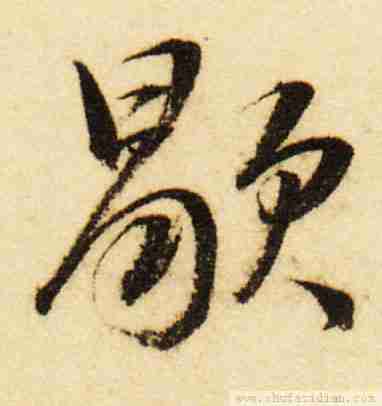 歇
www.shufazidian.com